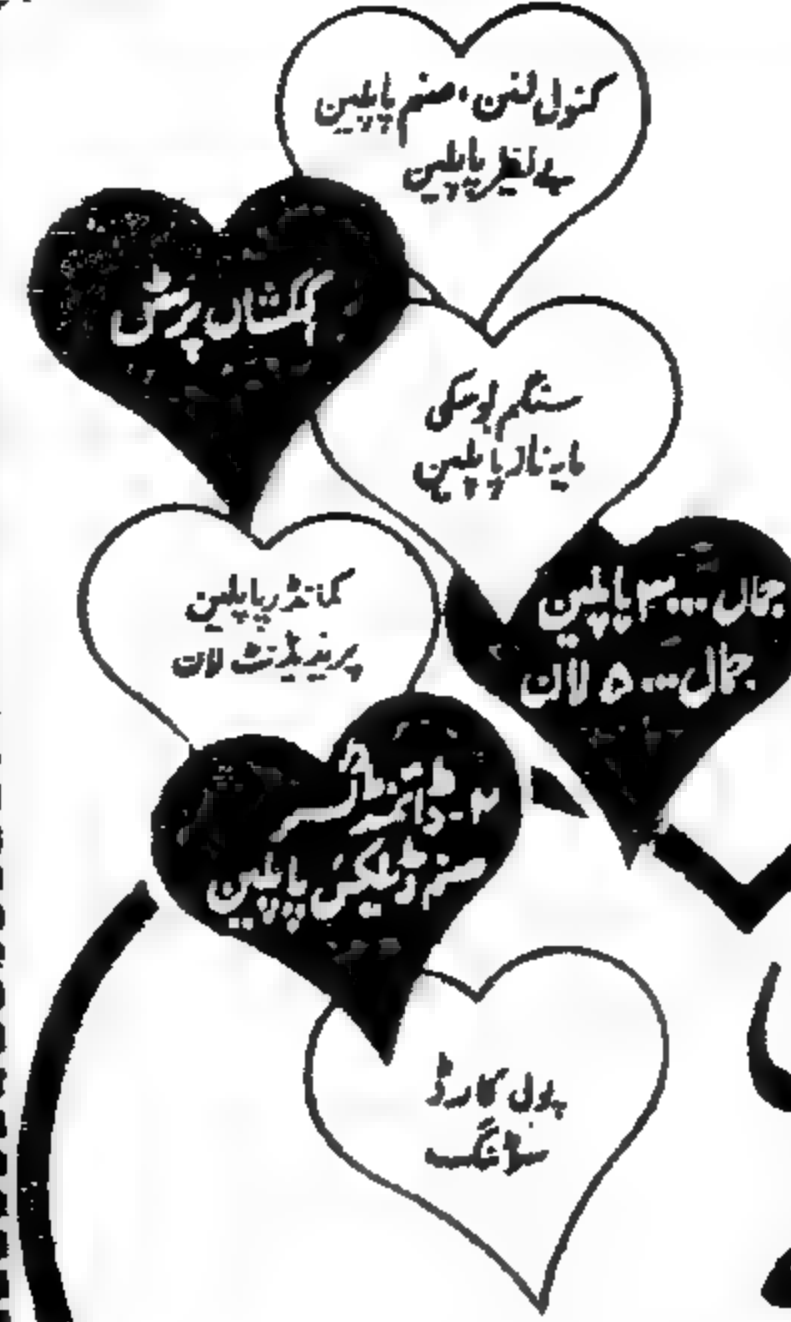 کنول لنن، صنم پاپلین
بے نظیر پاپلین
کہکشاں پرنٹس
سنگم بوسکی
مایہ ناز پاپلین
کمانڈر پاپلین
پریذیڈنٹ لان
جمال ۳۰۰۰ پاپلین
جمال ۵۰۰۰ لان
۲-ڈائمنڈ
صنم ڈیلکس پاپلین
پولی کارڈ